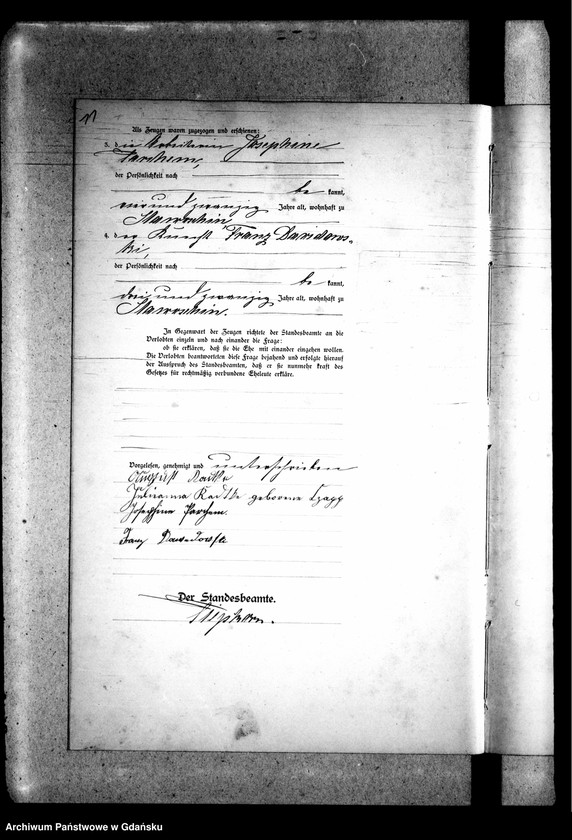 Als Zeugen waren zugezogen und erschienen:
3. die Arbeiterin Josephine
Parchem,
der Persönlichkeit nach
bekannt,
vierundzwanzig Jahre alt, wohnhaft zu
4. der Knecht Franz Davidows-
ki,
der Persönlichkeit nach
bekannt,
dreiundzwanzig Jahre alt, wohnhaft zu
In Gegenwart der Zeugen richtete der Standesbeamte an die
Verlobten einzeln und nach einander die Frage:
ob sie erklären, daß sie die Ehe mit einander eingehen wollen.
Die Verlobten beantworteten diese Frage bejahend und erfolgte hierauf
der Ausspruch des Standesbeamten, daß er sie nunmehr kraft des
Gesetzes für rechtmäßig verbundene Eheleute erkläre.
Vorgelesen, genehmigt und unterschrieben
August Radtke
Julianna Radtke geborene Czapp
Josephine Parchem.
Franz Dawidowski
Der Standesbeamte.
Archiwum Państwowe w Gdańsku